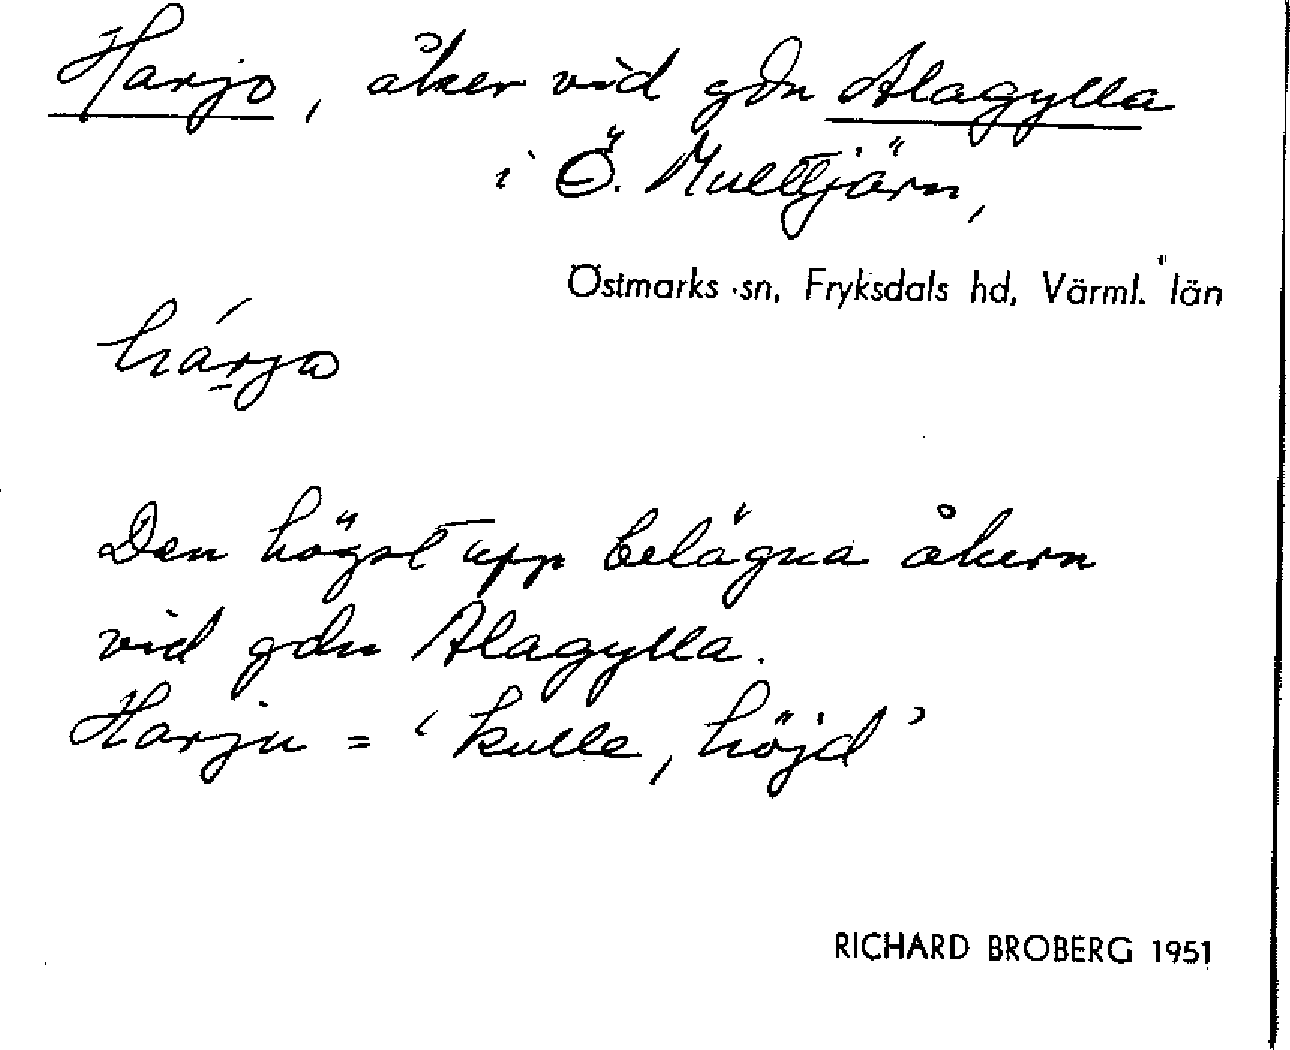 Harjo, åker vid gdn Alagylla
i Ö. Multtjärn,
Östmarks sn, Fryksdals hd, Värml. län
hárjo
Den högst upp belägna åkern
vid gdn Alagylla.
Harju = 'kulle, höjd'
RICHARD BROBERG 1951